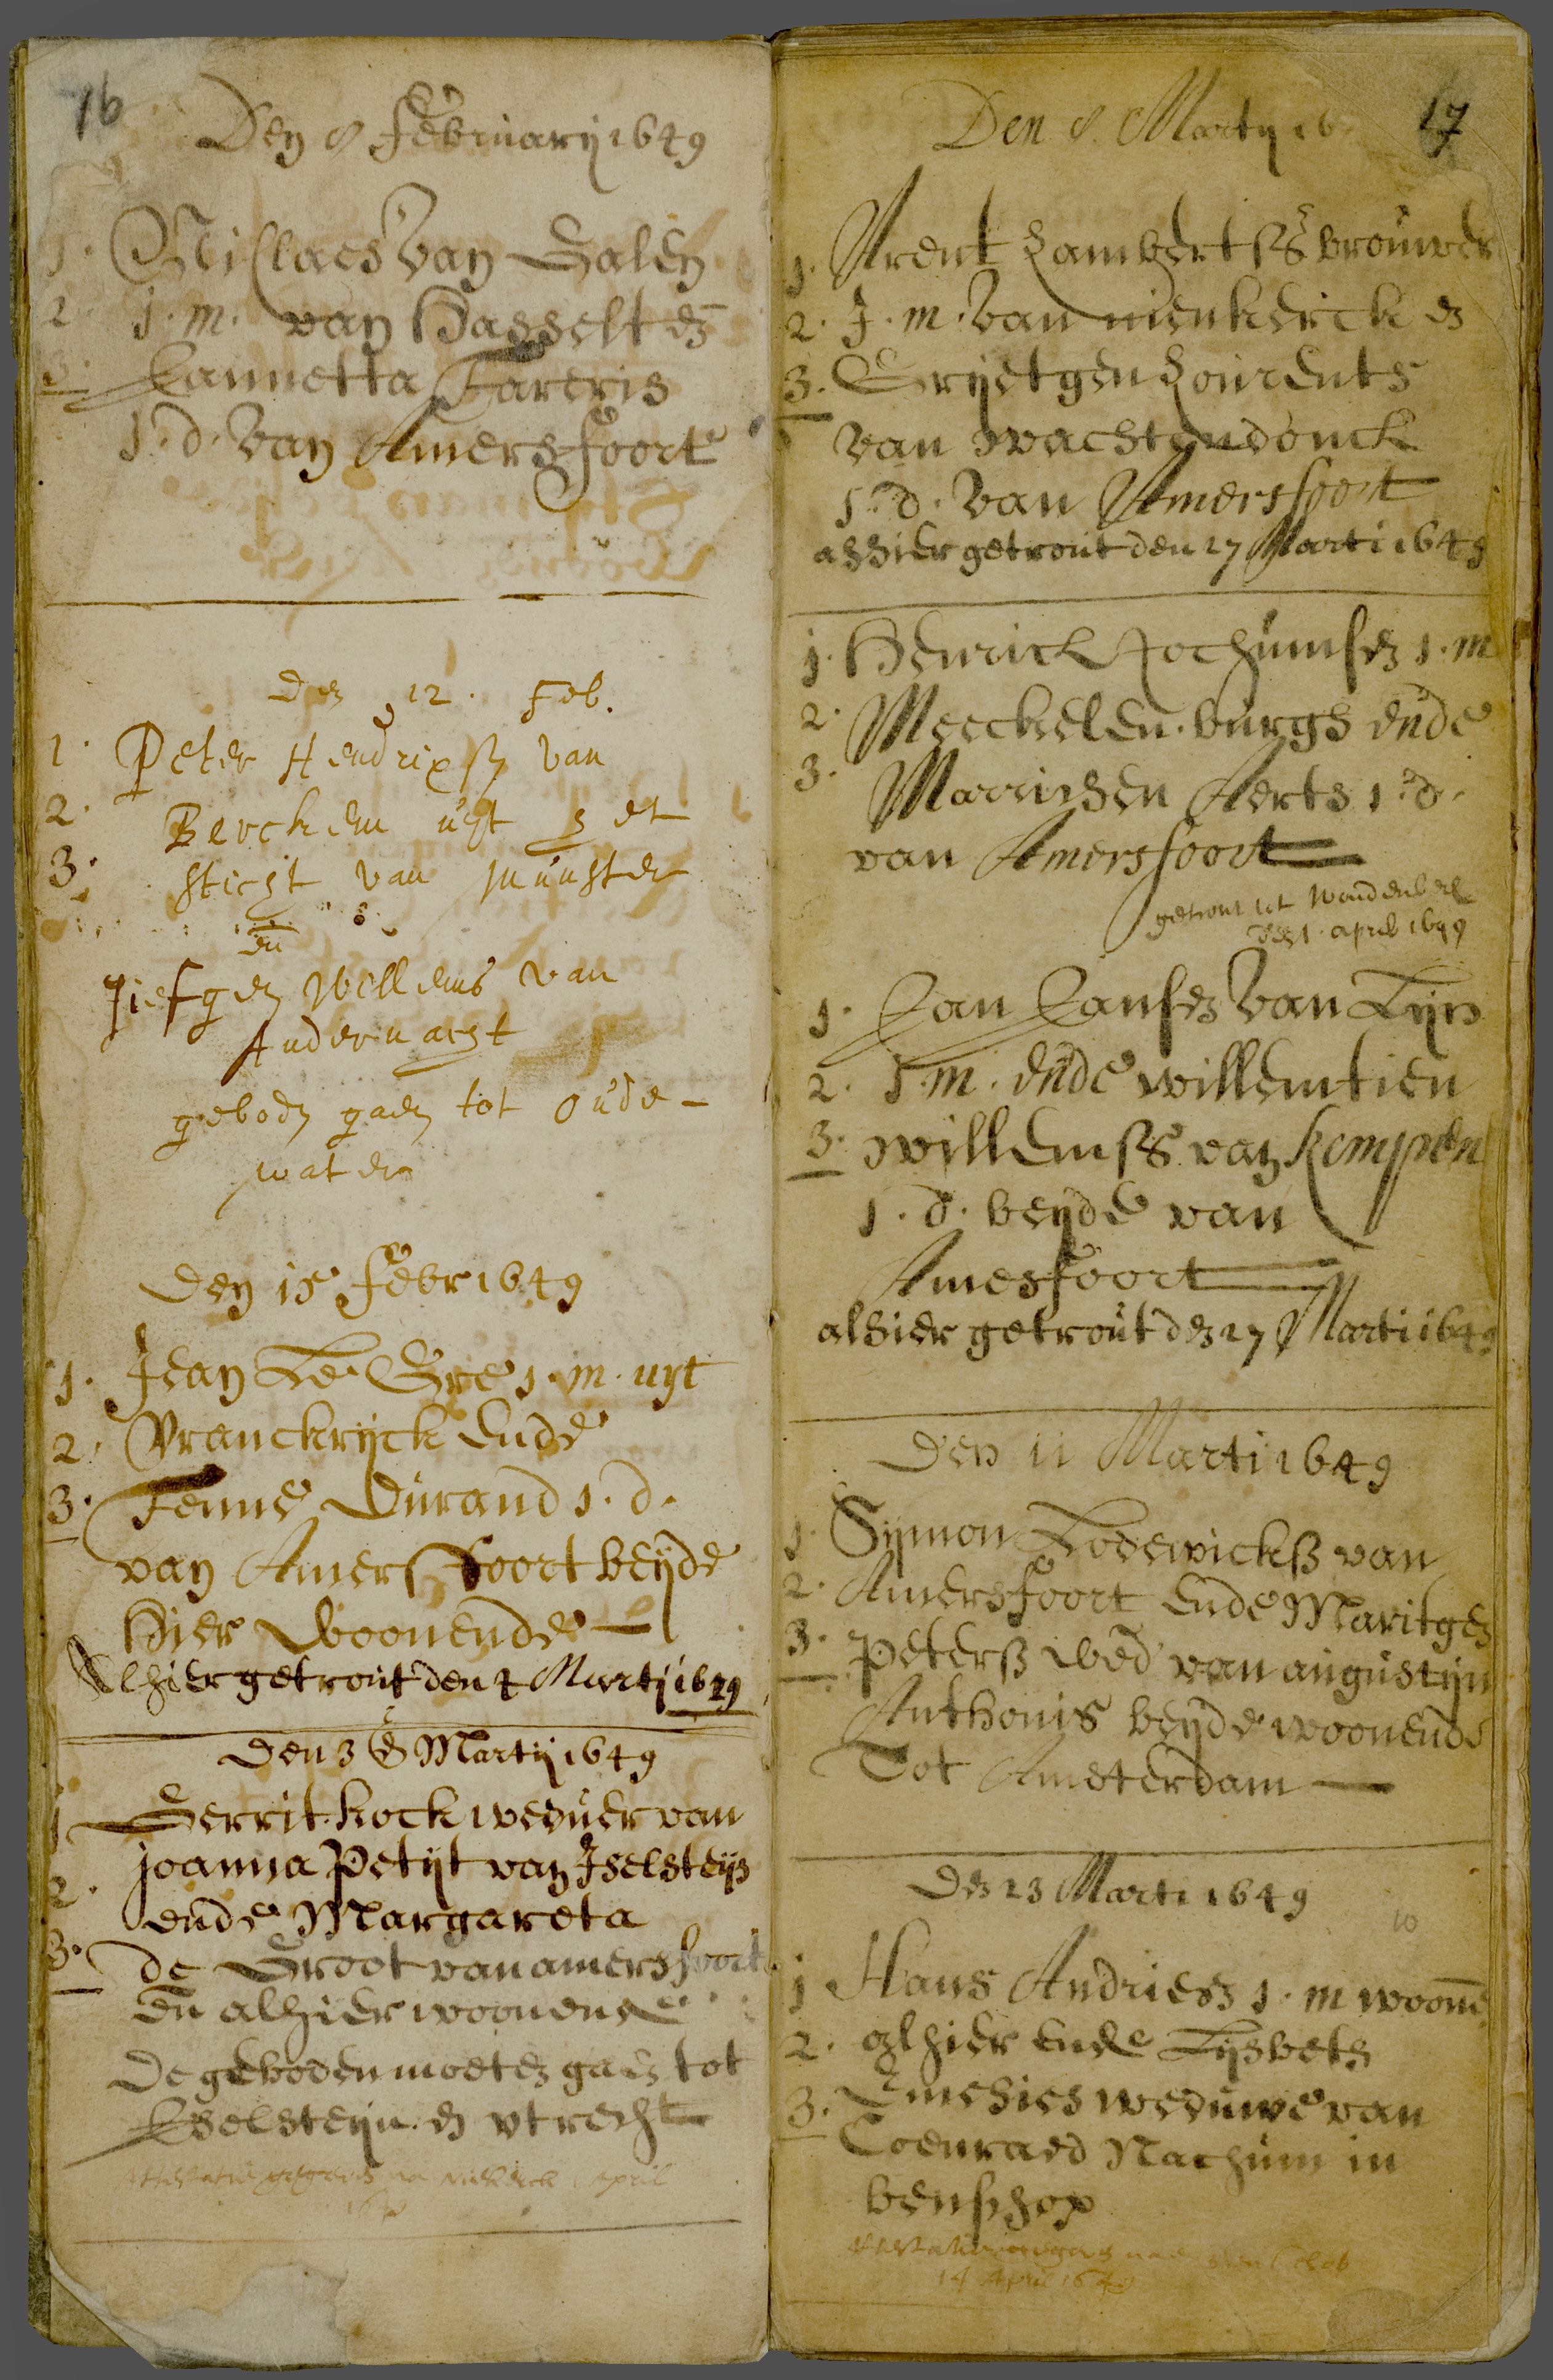 16
Den 8 february 1649
1. Nicllaes van Galen
2. j. m. van Hasselt en
3. Jannetta
j. d. van Amersfoort
Den 12. Feb.
1. Peter Hendrixsz van
2. Berckem uijt het
3. sticht van munster
en
Jiefgen Willems van
Andernacht
geboden gaen tot oude-
water
Den 15 Febr 1649
1. Jean Le Gre j. m. uyt
2. Vranckrijck ende
3. Fenne Durand j. d.
van Amersfoort beyde
hier woonende
Alhier getrout den 4 Martij 1649
Den 3 Martij 1649
1 Gerrit kock weduer van
2. joanna Petijt van Iselsteijn
ende Margareta
3. de Groot van amersfoort
en alhier woonende
De geboden moeten gaen tot
Eselsteijn en utrecht
april
17
Den 8. Martij 16
1. Arent Lambertss brouwer
2. J. m. van nieukerck en
3. Grijetgen Lourents
van wachtendonck
j. d. van Amersfoort
alhier getrout den 27 Marti 1649
1. Henrick Jochumsen j. m
2. Meeckelenburgh ende
3. Marrichen Aerts j. d.
van Amersfoort
getrout tot Woudenberch
den 1. april 1649
1. Jan Jansen van Lijn
2. j. m. ende willemtien
3. willemss van kempen
j. d. beyde van
Amesfoort
alhier getrout den 27 Marti 1649
Den 11 Marti 1649
1. Symon Lodewicksz van
2. Amersfoort ende Maritgen
3. Petersz wed van augustijn
Anthonis beyde woonende
Tot Ameterdam
Den 23 Marti 1649
10
1 Hans Andriesz j. m woone
2. alhier ende Lysbeth
3. weduwe van
Coenraed Nachum in
benschop
14 April 1649